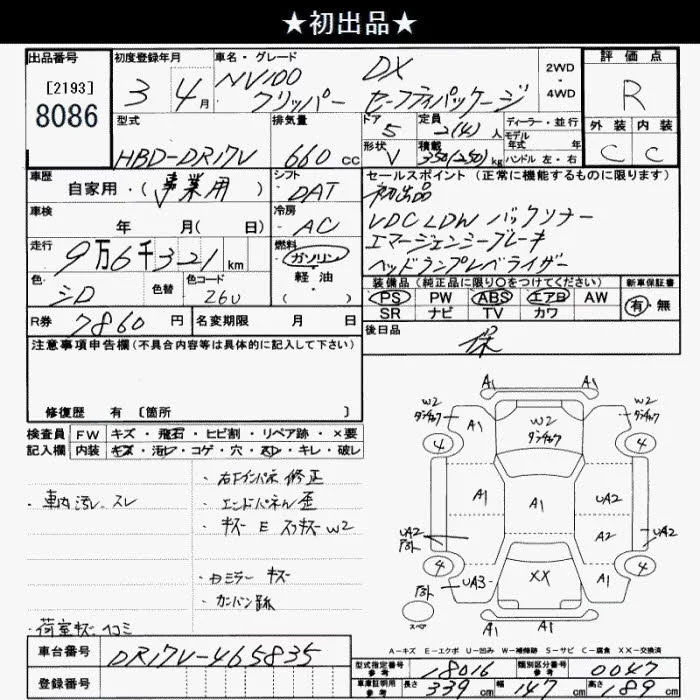 ★初出品★
出品番号
[2193]
8086
初度登録年月
3 4月
車名・グレード
NV100 クリッパー
DX セーフティパッケージ
2WD・4WD
評価点
R
外装 内装
C C
型式
HBD-DR17V
排気量
660cc
ドア 5
定員 2(4)人
ディーラー・並行
モデル年式 年式
形状 V
積載 350(250)kg
ハンドル 左・右
車歴
自家用・(事業用)
シフト
DAT
セールスポイント(正常に機能するものに限ります)
初出品
VDC LDW バックソナー
エマージェンシーブレーキ
ヘッドランプレベライザー
車検
年 月( 日)
冷房
AC
走行
9万6千321km
燃料
ガソリン
軽・油
( )
色
シロ
色替
色コード
26U
装備品(純正品に限り○をつけてください)
PS PW ABS エアB AW
SR ナビ TV カワ
新車保証書
有・無
R券 7860円
名変期限 月 日
後日品
保
注意事項申告欄(不具合内容等は具体的に記入して下さい)
修復歴 有〔箇所 〕
検査員記入欄
FW キズ・飛石・ヒビ割・リペア跡・×要
内装 キズ・汚レ・コゲ・穴・スレ・キレ・破レ
・車内汚レ、スレ
・荷室キズ・ヘコミ
・右Fインパネ修正
・エンドパネル歪
・キズ E スリキズ W2
・ミラー キズ
・カンバン跡
A1 A1
W2 W2
A1
W2
4 4
A1 A1 UA2
UA2 A2 UA2
4 4
UA3 XX A1
スペア
A1 A1
A=キズ E=エクボ U=凹み W=補修跡 S=サビ C=腐食 XX=交換済
車台番号
DR17V-465835
登録番号
型式指定番号 参考
18016
類別区分番号 参考
0047
車庫証明用 参考
長さ 339cm 幅 147cm 高さ 189cm